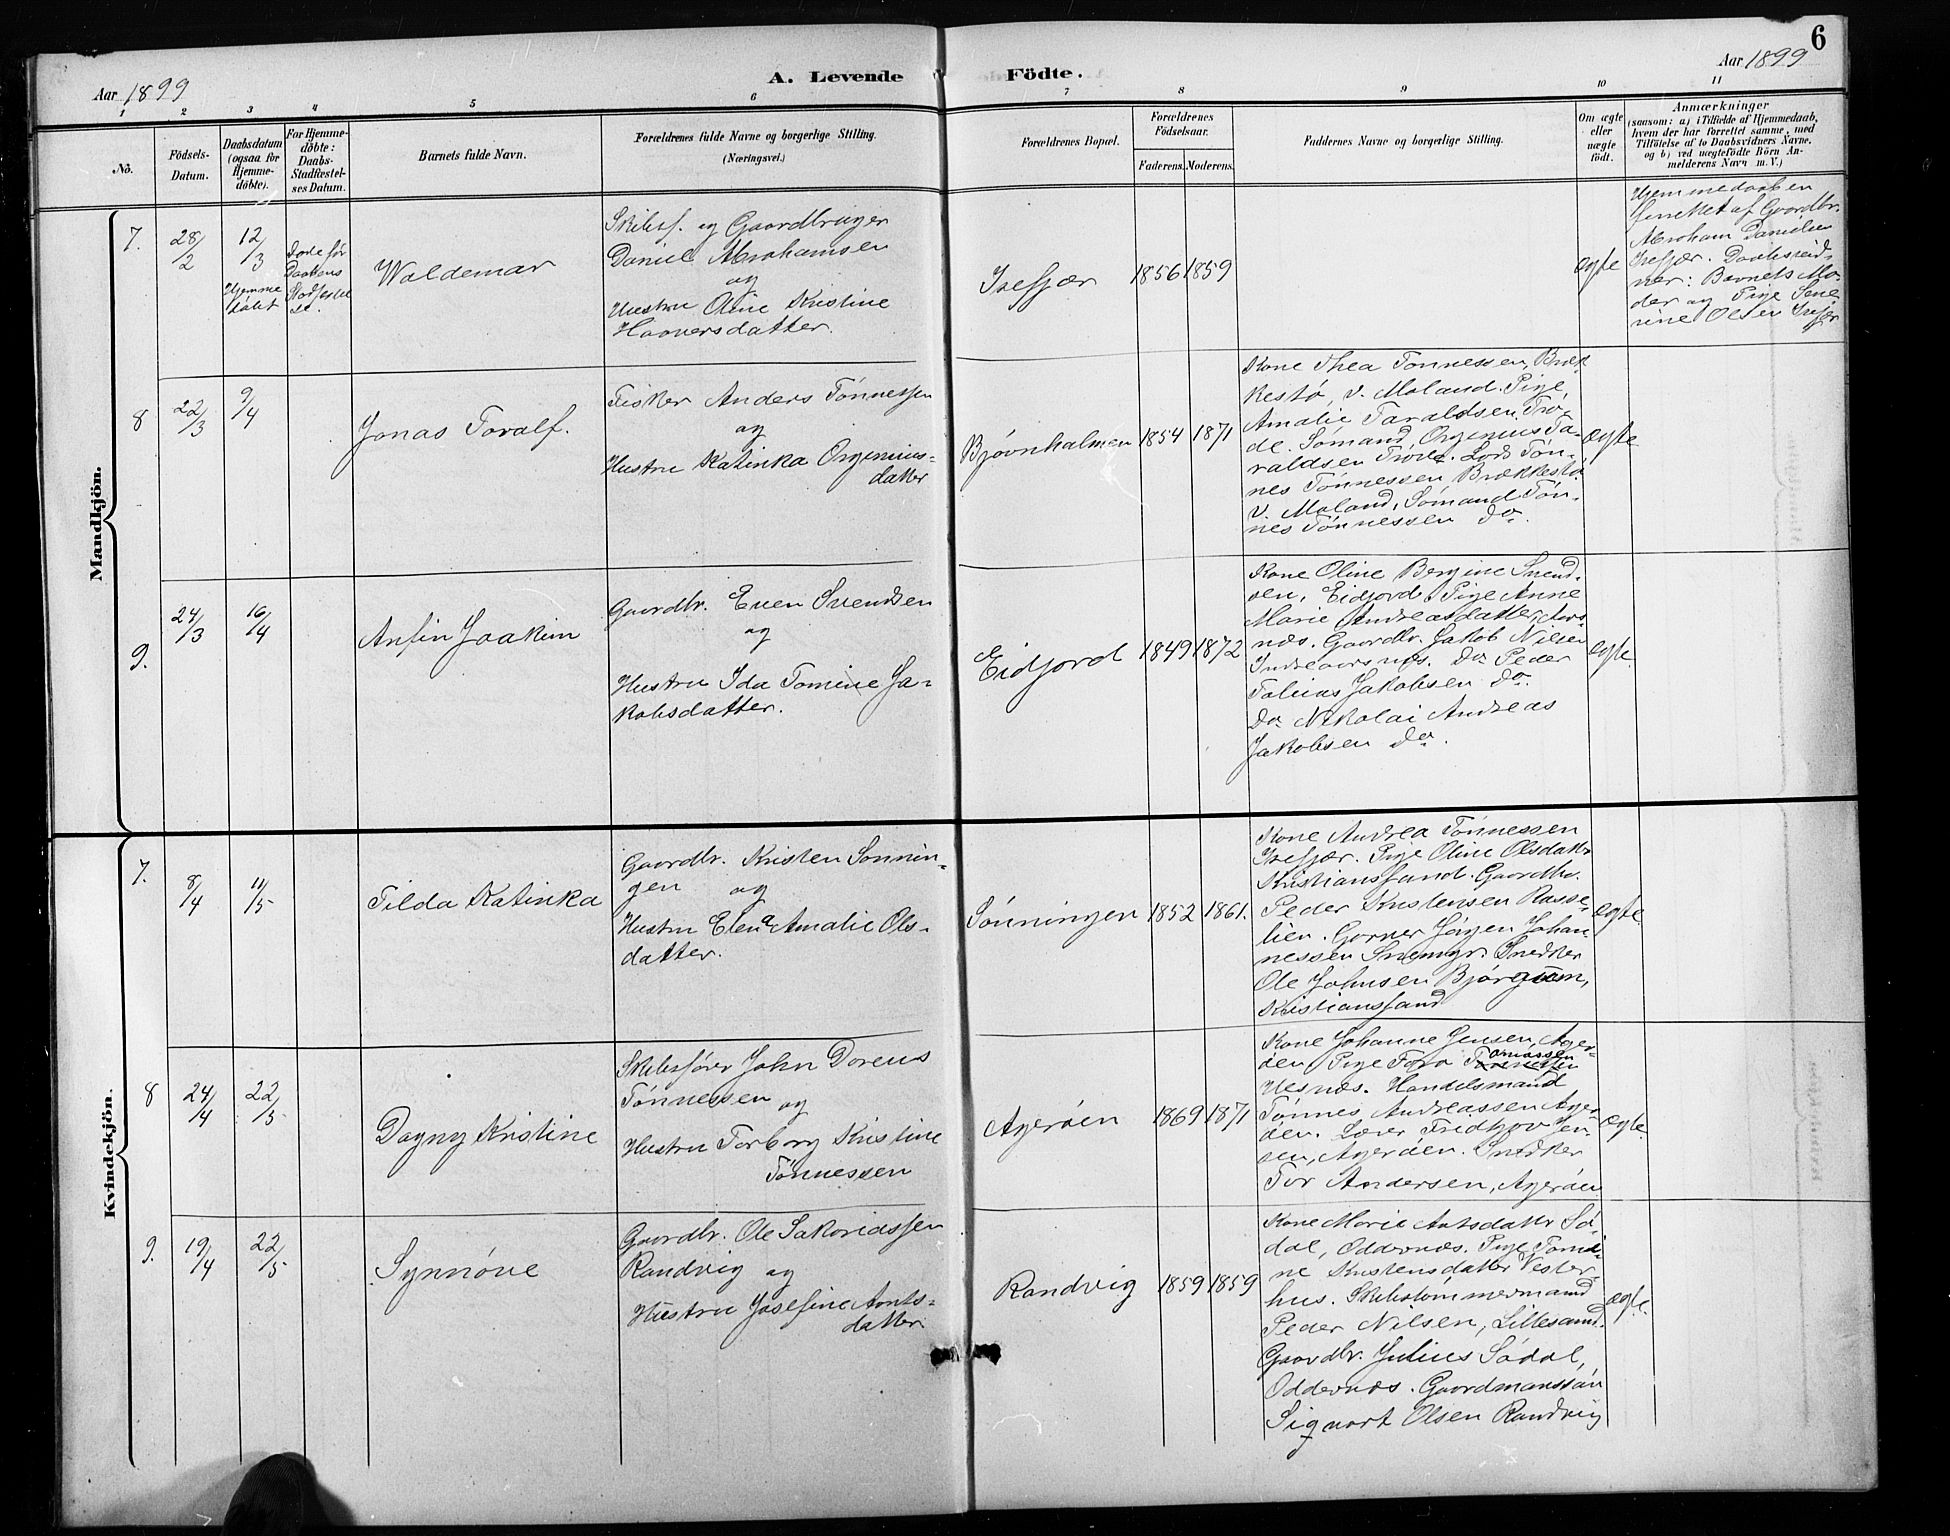 6
Aar 1899
A. Levende
Födte.
Aar 1899
1 2 3 4 5 6 7 8 9 10 11
No.
Födsels-
Datum.
Daabsdatum
(ogsaa for
Hjemme-
döbte).
For Hjemme-
döbte:
Daabs-
Stadfæstel-
ses Datum.
Barnets fulde Navn.
Forældrenes fulde Navne og borgerlige Stilling.
(Næringsvei.)
Forældrenes Bopæl.
Forældrenes
Födselsaar.
Faderens. Moderens.
Faddernes Navne og borgerlige Stilling.
Om ægte
eller
uægte
födt.
Anmærkninger
(saasom: a) i Tilfælde af Hjemmedaab,
hvem der har forrettet samme, med
Tilföielse af to Daabsvidners Navne,
og b) ved uægtefödte Börn An-
melderens Navn m. V.)
Mandkjön.
7.
28/2
12/3
Hjemme
døbt
Døde før
Daabens
Stadfæstel
se.
Waldemar
Skibsf. og Gaardbruger
Daniel Abrahamsen
og
Hustru Oline Kristine
Haaversdatter.
Isefjær
1856 1859
ægte
Hjemmedaaben
forrettet af Gaardbr.
Abraham Danielsen
Isefjær. Daabsvid-
ner: Barnets Mo-
der og Pige
Olsen Isefjær
8
22/3
9/4
Jonas Toralf.
Fisker Anders Tønnessen
og
Hustru Katinka Orgenius-
datter
Bjøvnholmen
1854 1871
Kone Thea Tønnessen, Bræk-
kestø, V. Moland. Pige
Amalie Taraldsen, Trø-
de. Sømand Orgenius Ta-
raldsen Trøde. Lods Tøn-
nes Tønnessen Brækkestø
V. Moland, Sømand Tøn-
nes Tønnessen do.
ægte
9.
24/3
16/4
Anfin Joakim
Gaardbr. Even Svendsen
og
Hustru Ida Tomine Ja-
kobsdatter.
Eidjord
1849 1872
Kone Oline Bergine Svend-
sen, Eidjord. Pige Anne
Marie Andreasdatter, Aors-
næs. Gaardbr. Jakob Nilsen
Indreaorsnæs. Do Peder
Tobias Jakobsen do.
Do Nikolai Andreas
Jakobsen do.
ægte.
Kvindekjön.
7.
8/4
11/5
Tilda Katinka
Gaardbr. Kristen Sønnin-
gen og
Hustru Elene Amalie Ols-
datter.
Sønningen
1852 1861.
Kone Andrea Tønnessen
Isefjær. Pige Oline Olsdatter
Kristianssand. Gaardbr.
Peder Kristensen Rosse-
lien. Garver Jörgen Johan-
nessen Snemyr. Snedker
Ole Johnsen Bjørgum,
Kristianssand
ægte
8
24/4
22/5
Dagny Kristine
Skibsfører John Dorens
Tønnessen og
Hustru Torborg Kristine
Tønnessen
Agerøen
1869 1871
Kone Johanne Jensen, Ager-
øen Pige Tora Tomassen
Hesnæs. Handelsmand
Tønnes Andreassen Ager-
øen. Lærer Fridtjov Jen-
sen, Agerøen. Snedker
Tor Andersen, Agerøen
ægte.
9.
19/4
22/5
Synnøve
Gaardbr. Ole Sakariassen
Randvig og
Hustru Josefine Aants-
datter.
Randvig
1859 1859
Kone Marie Antsdatter Sø-
dal, Oddernæs. Pige Tomi-
ne Kristensdatter Vester-
hus. Skibstømmermand
Peder Nilsen, Lillesand.
Gaardbr. Julius Sødal,
Oddernæs. Gaardmanssøn
Sigvart Olsen Randvig
ægte.